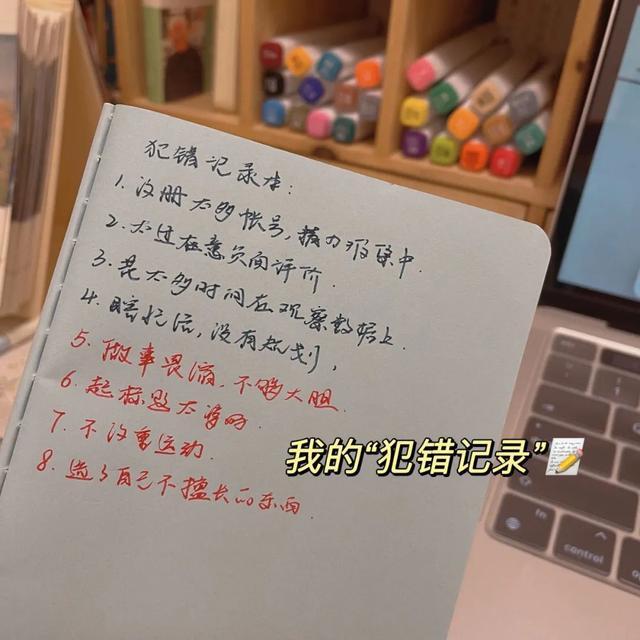 犯错记录本:
1. 注册太多帐号,精力很集中.
2. 太过在意负面评价.
3. 花太多时间在观察数据上.
4. 瞎忙活,没有规划,
5. 做事畏缩.不够大胆
6. 起标题太
7. 不注重运动.
8. 选了自己不擅长的东西.
我的“犯错记录”
fn
control